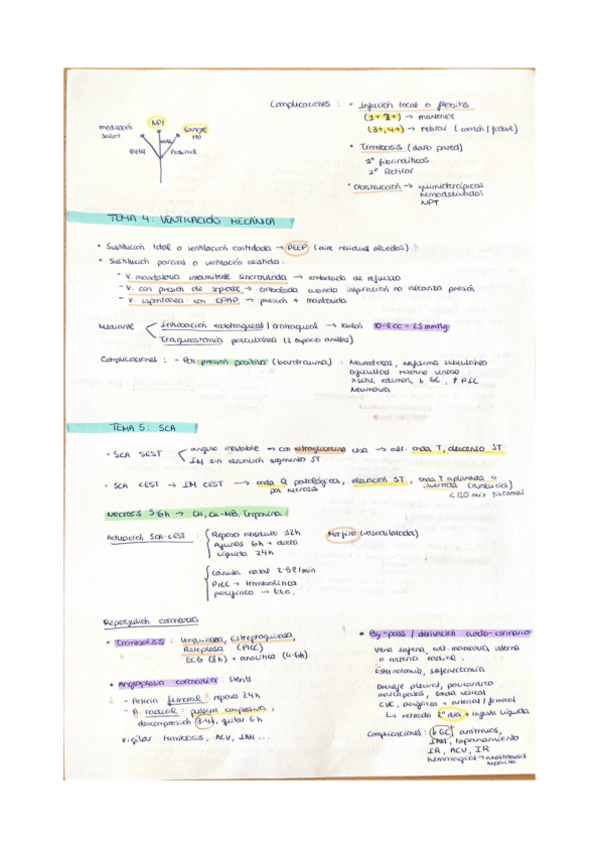 Complicaciones: • Infección local o flebitis
(1+ 2+) → mantener
(3+, 4+) → retirar
• Trombosis (daño pared)
1º fibrinolíticos
2º Retirar
• Obstrucción → quimioterápicos
hemoderivados
NPT
NPT
medicación
sangre
TEMA 4: VENTILACIÓN MECÁNICA
• Sustitución total o ventilación controlada → PEEP (aire residual alveolos)
• Sustitución parcial o ventilación asistida:
- V. mandatoria intermitente sincronizada → embolada de refuerzo
- V. con presión de soporte → embolada cuando inspiración no alcanza presión
- V. espontánea con CPAP → presión + mantenida
Mediante
Intubación endotraqueal / orotraqueal → balón 
Traqueostomía percutánea (2 espacio anillos)
Complicaciones: - Por presión positiva (barotrauma): Neumotórax, enfisema subcutáneo
Dificultad retorno venoso
edemas, ↓ GC, ↑ PIC
Neumonía
TEMA 5: SCA
• SCA SEST
angina inestable → con nitroglicerina cesa → alt. onda T, descenso ST
IM sin elevación segmento ST
• SCA CEST → IM CEST → onda Q patológica, elevación ST, onda T aplanada o
por necrosis
invertida
< 120 min síntomas
Necrosis 5-6h → CK, CK-MB, troponina
Actuación SCA-CEST: Reposo absoluto 12h
Morfina (vasodilatador)
Ayunas 6h + dieta
líquida 24h
Cánula nasal
PICC → trombolítica
periférico →
Reperfusión coronaria
• Trombolisis: Uroquinasa, Estreptoquinasa,
Reteplasa (PICC)
ECG (8h) + analítica (4-6h)
• Angioplastia coronaria: stents
- Arteria femoral: reposo 24h
- A. radial: pulsera compresiva,
descompresión 3-4h, quitar 6h
Vigilar trombosis, ACV, IAM...
• By-pass / derivación aorto-coronario
Vena safena, art. mamaria interna
o arteria radial.
Esternotomía, safenectomía
Drenaje pleural, pericárdico
marcapasos, sonda vesical
CVC, periférico + arterial / femoral
↳ retirada 2º día + ingesta líquida
Complicaciones: ↓ GC, arritmias,
IAM, taponamiento
IR, ACV, IR
hemorragias →